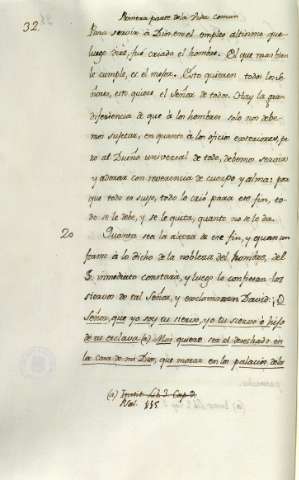 Primera parte de la Vida comun
32.
Para servir à Dios en el empleo altissimo que
luego dirè, fuè criado el hombre. El que mas bien
le cumple, es el mejor. Esto quieren todos los Se-
ñores, esto quiere el Señor de todos. Hay la gran
diferencia de que à los hombres solo nos debe-
mos sujetar, en quanto à los oficios exteriores, pe-
ro al Dueño universal de todo, debemos servir
y adorar con reverencia de cuerpo y alma: por
que todo es suyo, todo lo criò para ese fin, to-
do se le debe, y se le quita, quanto no se le da.
20 Quanta sea la alteza de ese fin, y quan con
forme à lo dicho de la nobleza del hombre, del
§. inmediato constarà, y luego lo confiesan los
siervos de tal Señor, y exclamarà con David: ¡O
Señor, que yo soy tu siervo, yo tu siervo è hijo
de tu esclava (a) Mas quiero ser el desechado en
la casa de mi Dios, que morar en los palacios de los
(a) Lib. 2. Cap.
Psal. 115.